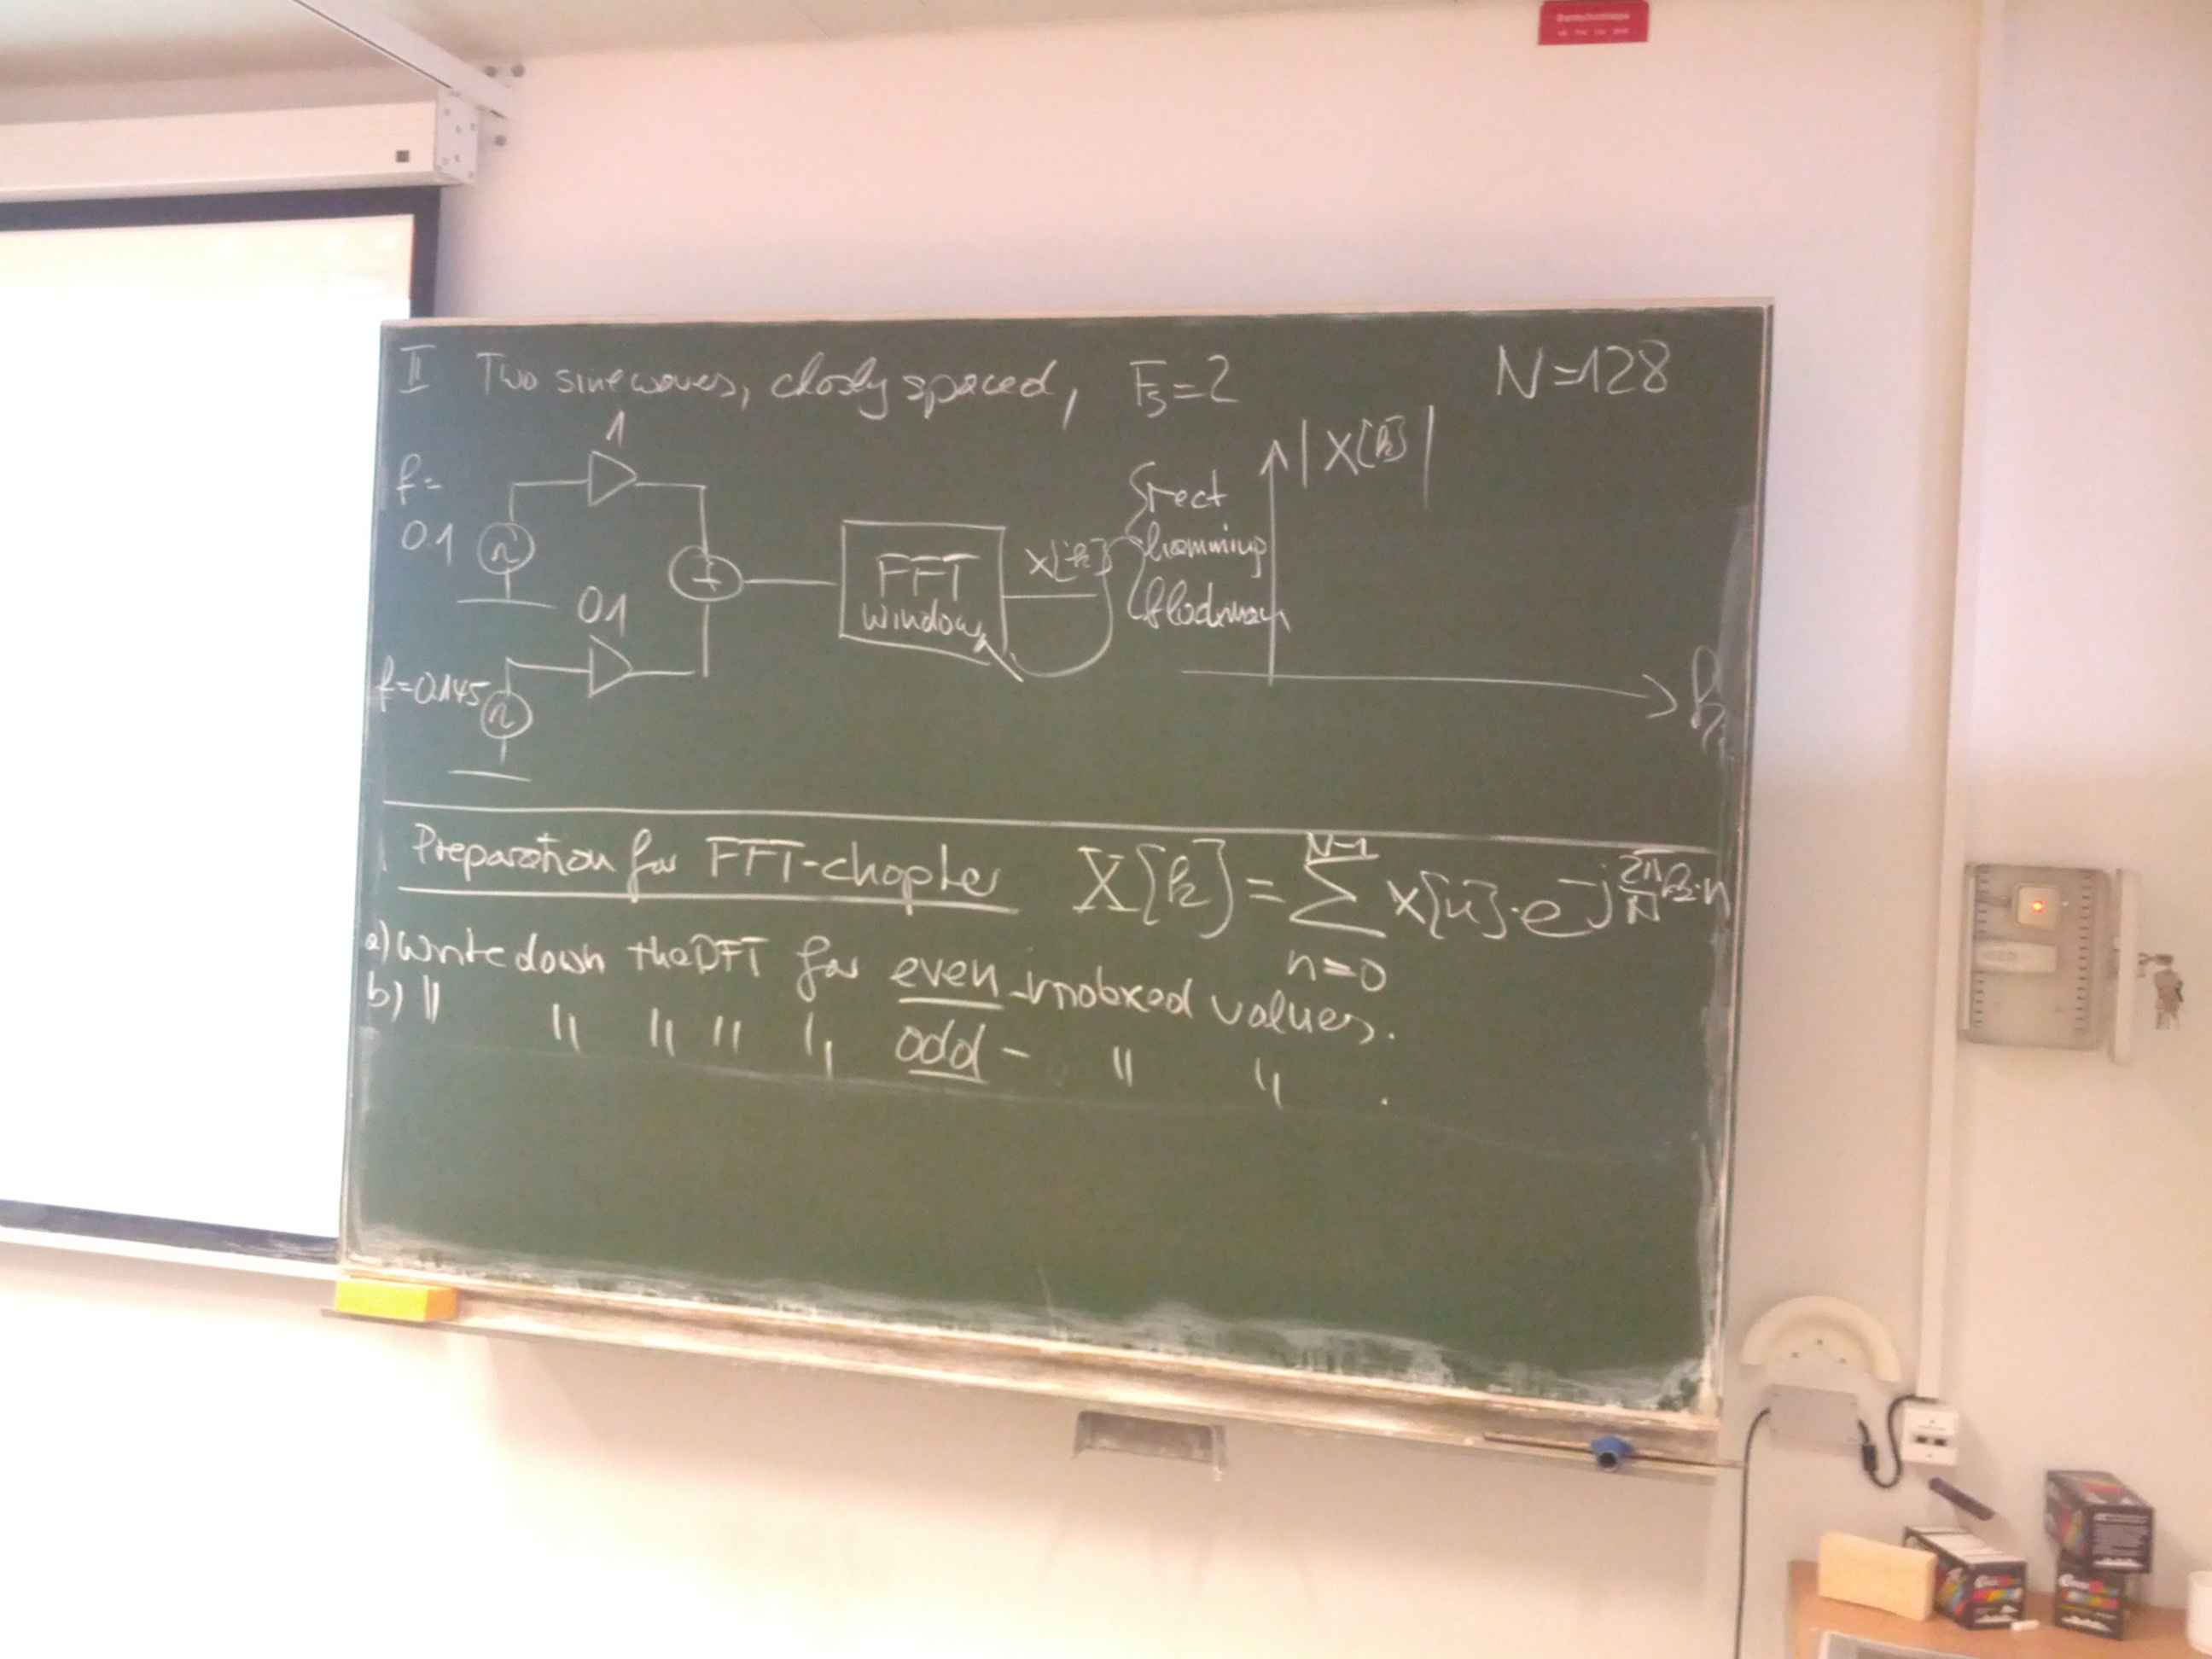 II Two sinewaves, closly spaced, Fs=2 N=128
1
f=
0.1
01
f=0.145
+
FFT
window
X[k]
rect
hamming
blackman
|X[k]|
k
Preparation for FFT-chapter X[k] = N-1 ∑ n=0 x[n]·e^-j 2π/N k·n
a) write down the DFT for even-indexed values.
b) " " " " " odd - " " .